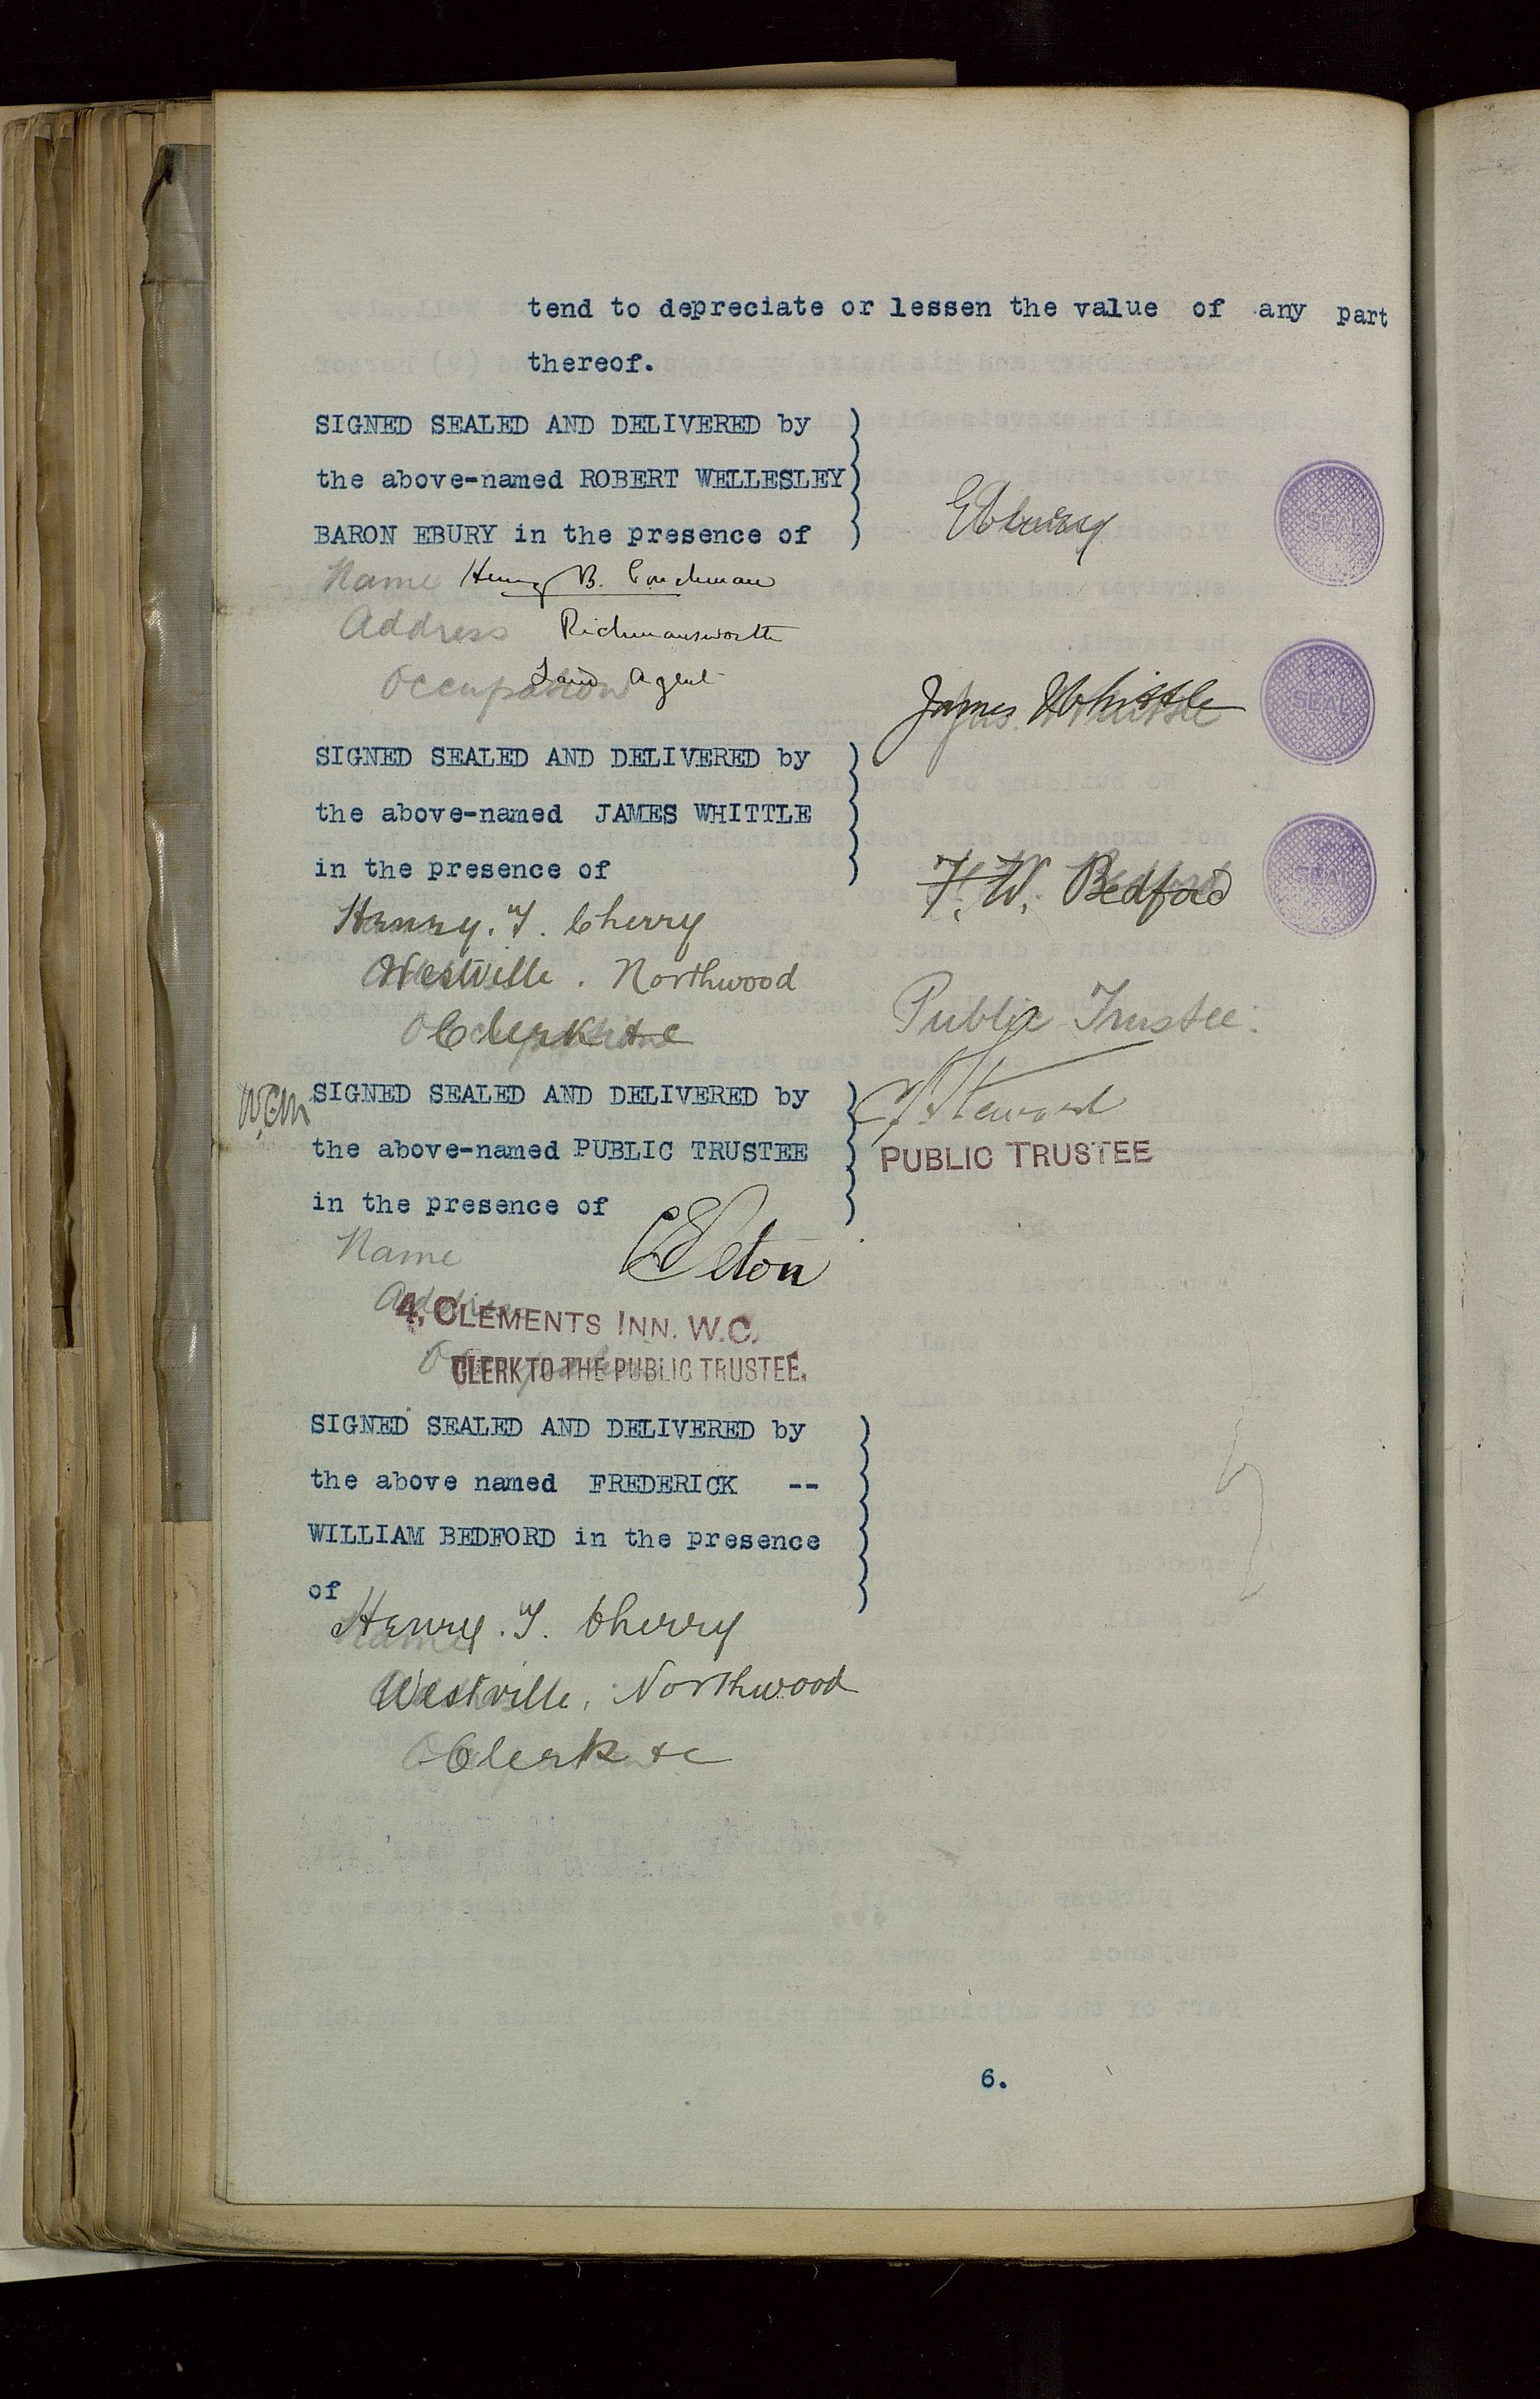 tend to depreciate or lessen the value of any part
thereof.
SIGNED SEALED AND DELIVERED by
the above-named ROBERT WELLESLEY
BARON EBURY in the presence of
Ebury
SEAL
Name Henry B. Couchman
Address Rickmansworth
Occupation Land Agent
James Whittle
SEAL
SIGNED SEALED AND DELIVERED by
the above-named JAMES WHITTLE
in the presence of
F. W. Bedford
SEAL
Henry. T. Cherry
Westville. Northwood
Clerk &c
Public Trustee.
SIGNED SEALED AND DELIVERED by
the above-named PUBLIC TRUSTEE
in the presence of
Steward
PUBLIC TRUSTEE
Name
Address
4, CLEMENTS INN. W.C.
CLERK TO THE PUBLIC TRUSTEE.
SIGNED SEALED AND DELIVERED by
the above named FREDERICK --
WILLIAM BEDFORD in the presence
of
Henry. T. Cherry
Westville, Northwood
Clerk &c
6.